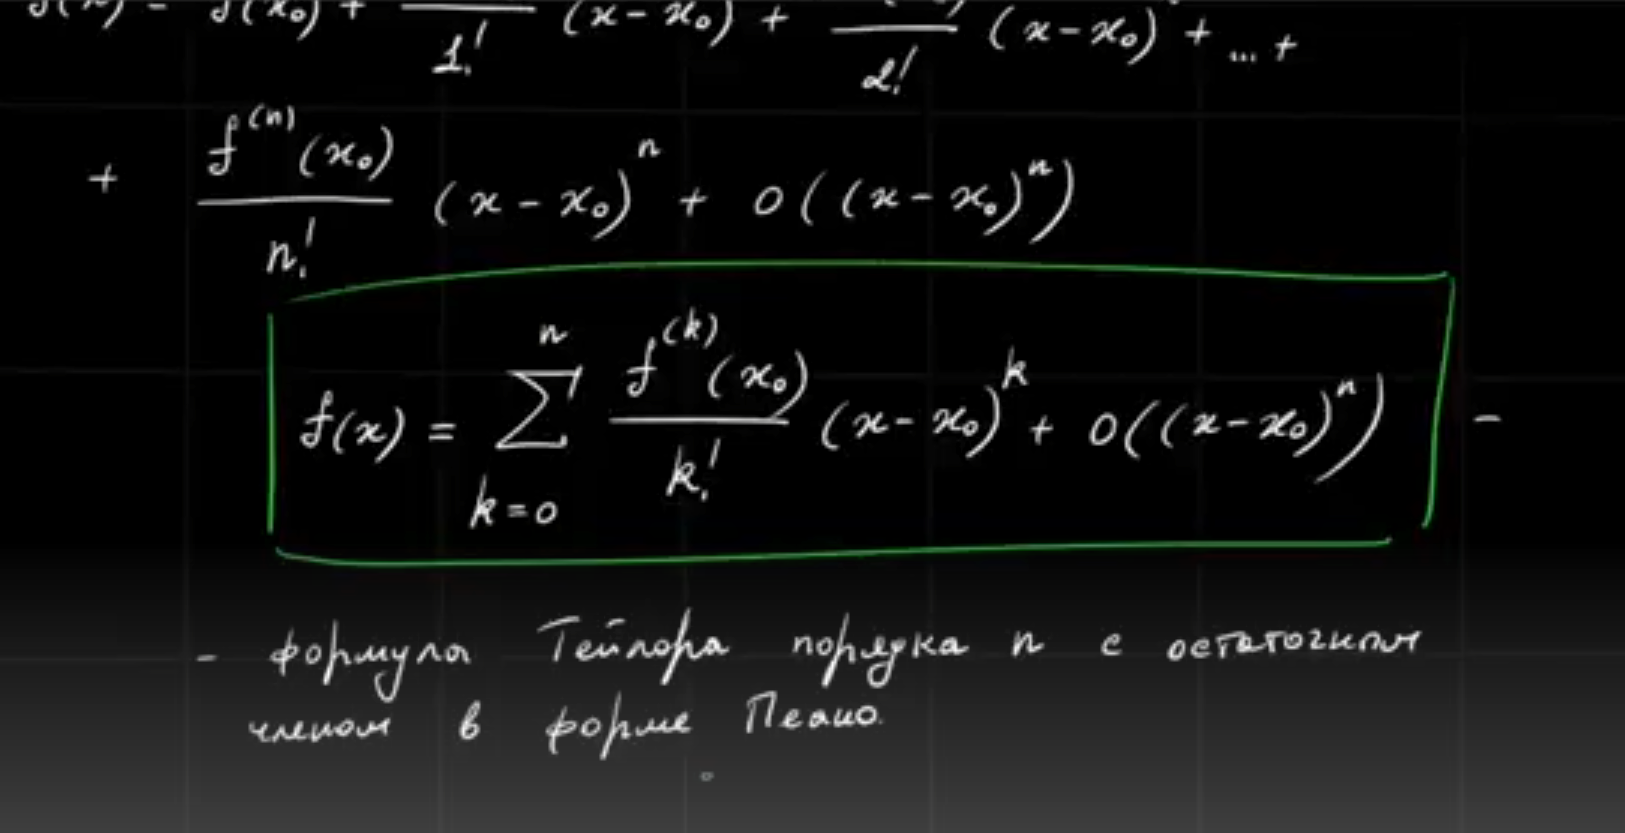 f(x) = f(x₀) + ―/1! (x - x₀) + ―/2! (x - x₀) + ... +
+ f⁽ⁿ⁾(x₀)/n! (x - x₀)ⁿ + o((x - x₀)ⁿ)
f(x) = ∑ₖ₌₀ⁿ f⁽ᵏ⁾(x₀)/k! (x - x₀)ᵏ + o((x - x₀)ⁿ) -
- формула Тейлора порядка n с остаточным
членом в форме Пеано.